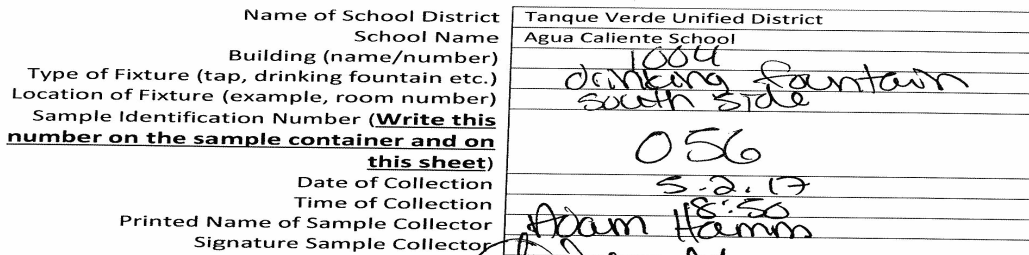 Name of School District Tanque Verde Unified District
School Name Agua Caliente School
Building (name/number) 1004
Type of Fixture (tap, drinking fountain etc.) drinking fountain
Location of Fixture (example, room number) south side
Sample Identification Number (Write this
number on the sample container and on
this sheet) 056
Date of Collection 5.2.17
Time of Collection 8:50
Printed Name of Sample Collector Adam Hamm
Signature Sample Collector